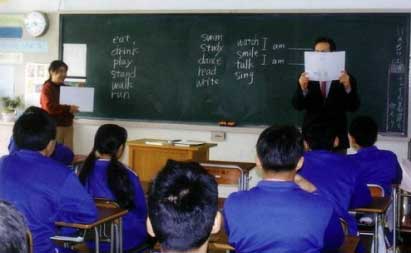 eat
drink
play
stand
walk
run
swim
study
dance
read
write
watch
smile
talk
sing
I am
I am